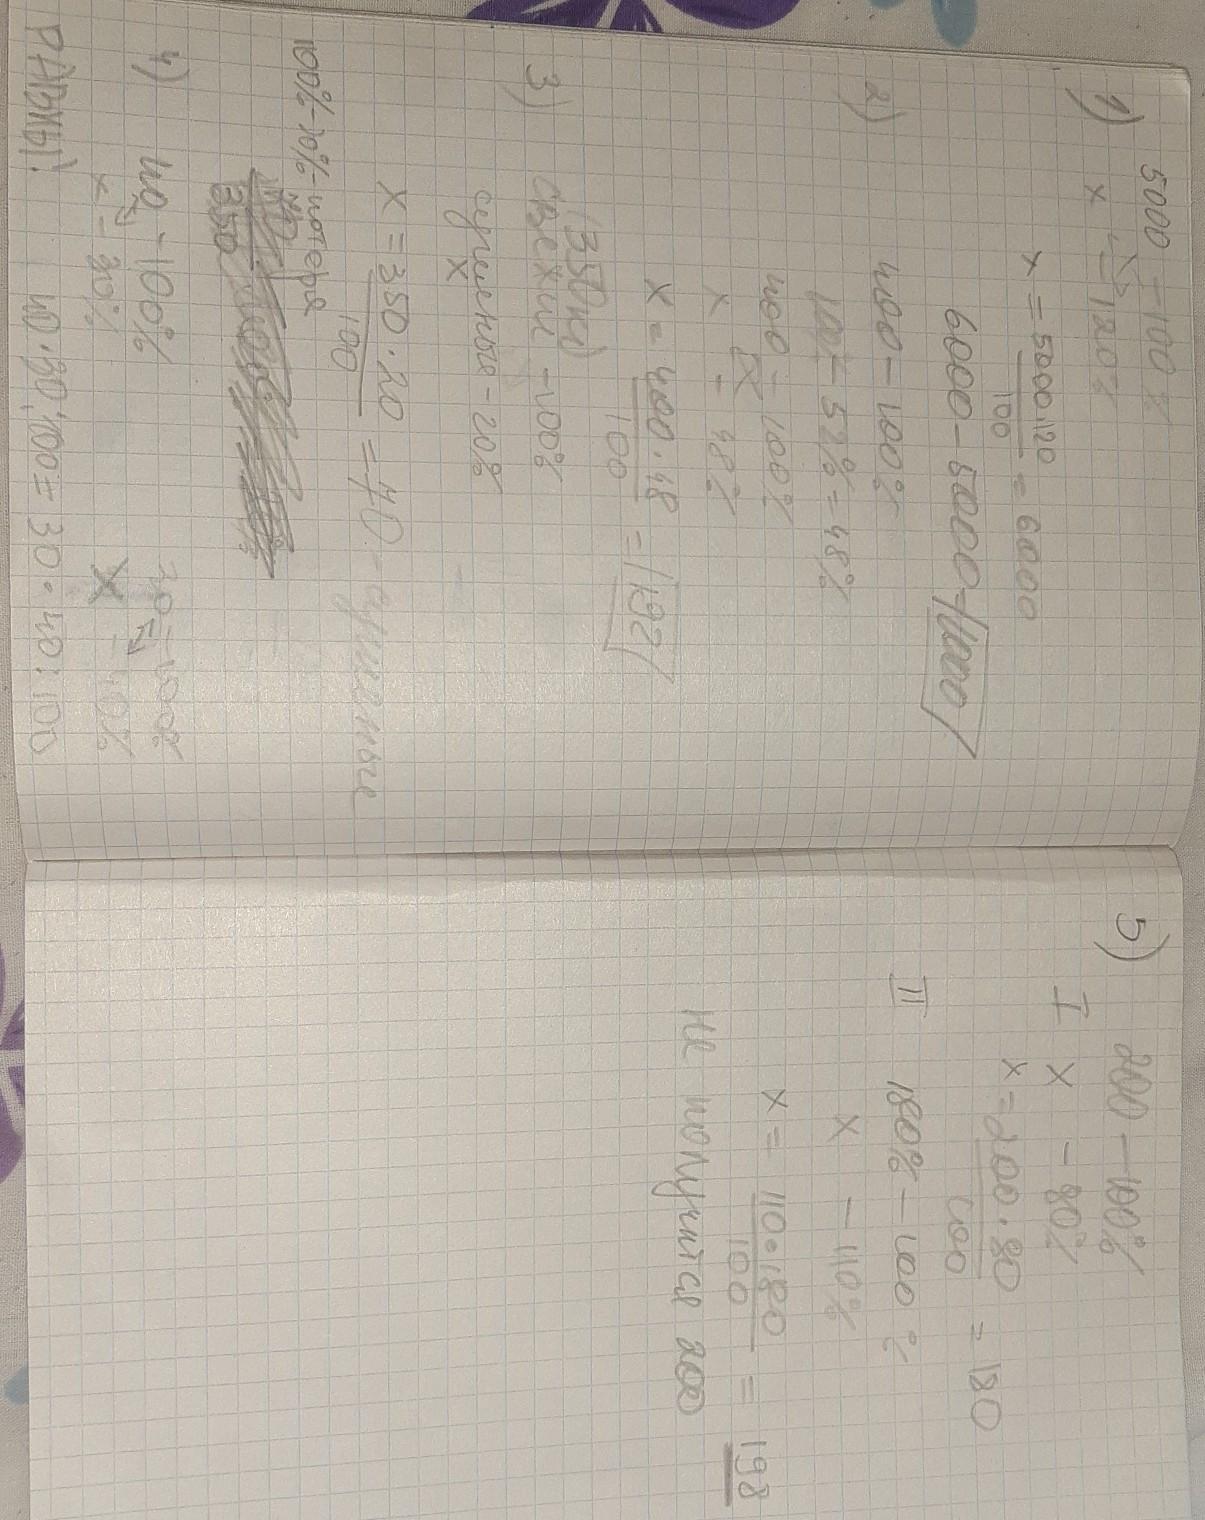 1) 5000 - 100%
x - 120%
x = 5000·120 / 100 = 6000
6000 - 5000 = 1000
2) 400 - 100%
100% - 52% = 48%
400 - 100%
x - 48%
x = 400·48 / 100 = 192
3) (350 кг)
свежие - 100%
сушеные - 20%
x
x = 350·20 / 100 = 70 - сушеные
100% - 20% - потеря
350
4) 40 - 100%
x - 30%
30 - 100%
x - 40%
РАВНЫ! 40·30:100 = 30·40:100
5)
I 200 - 100%
x - 80%
x = 200·80 / 100 = 180
II 180% - 100%
x - 110%
x = 110·180 / 100 = 198
не получится 200